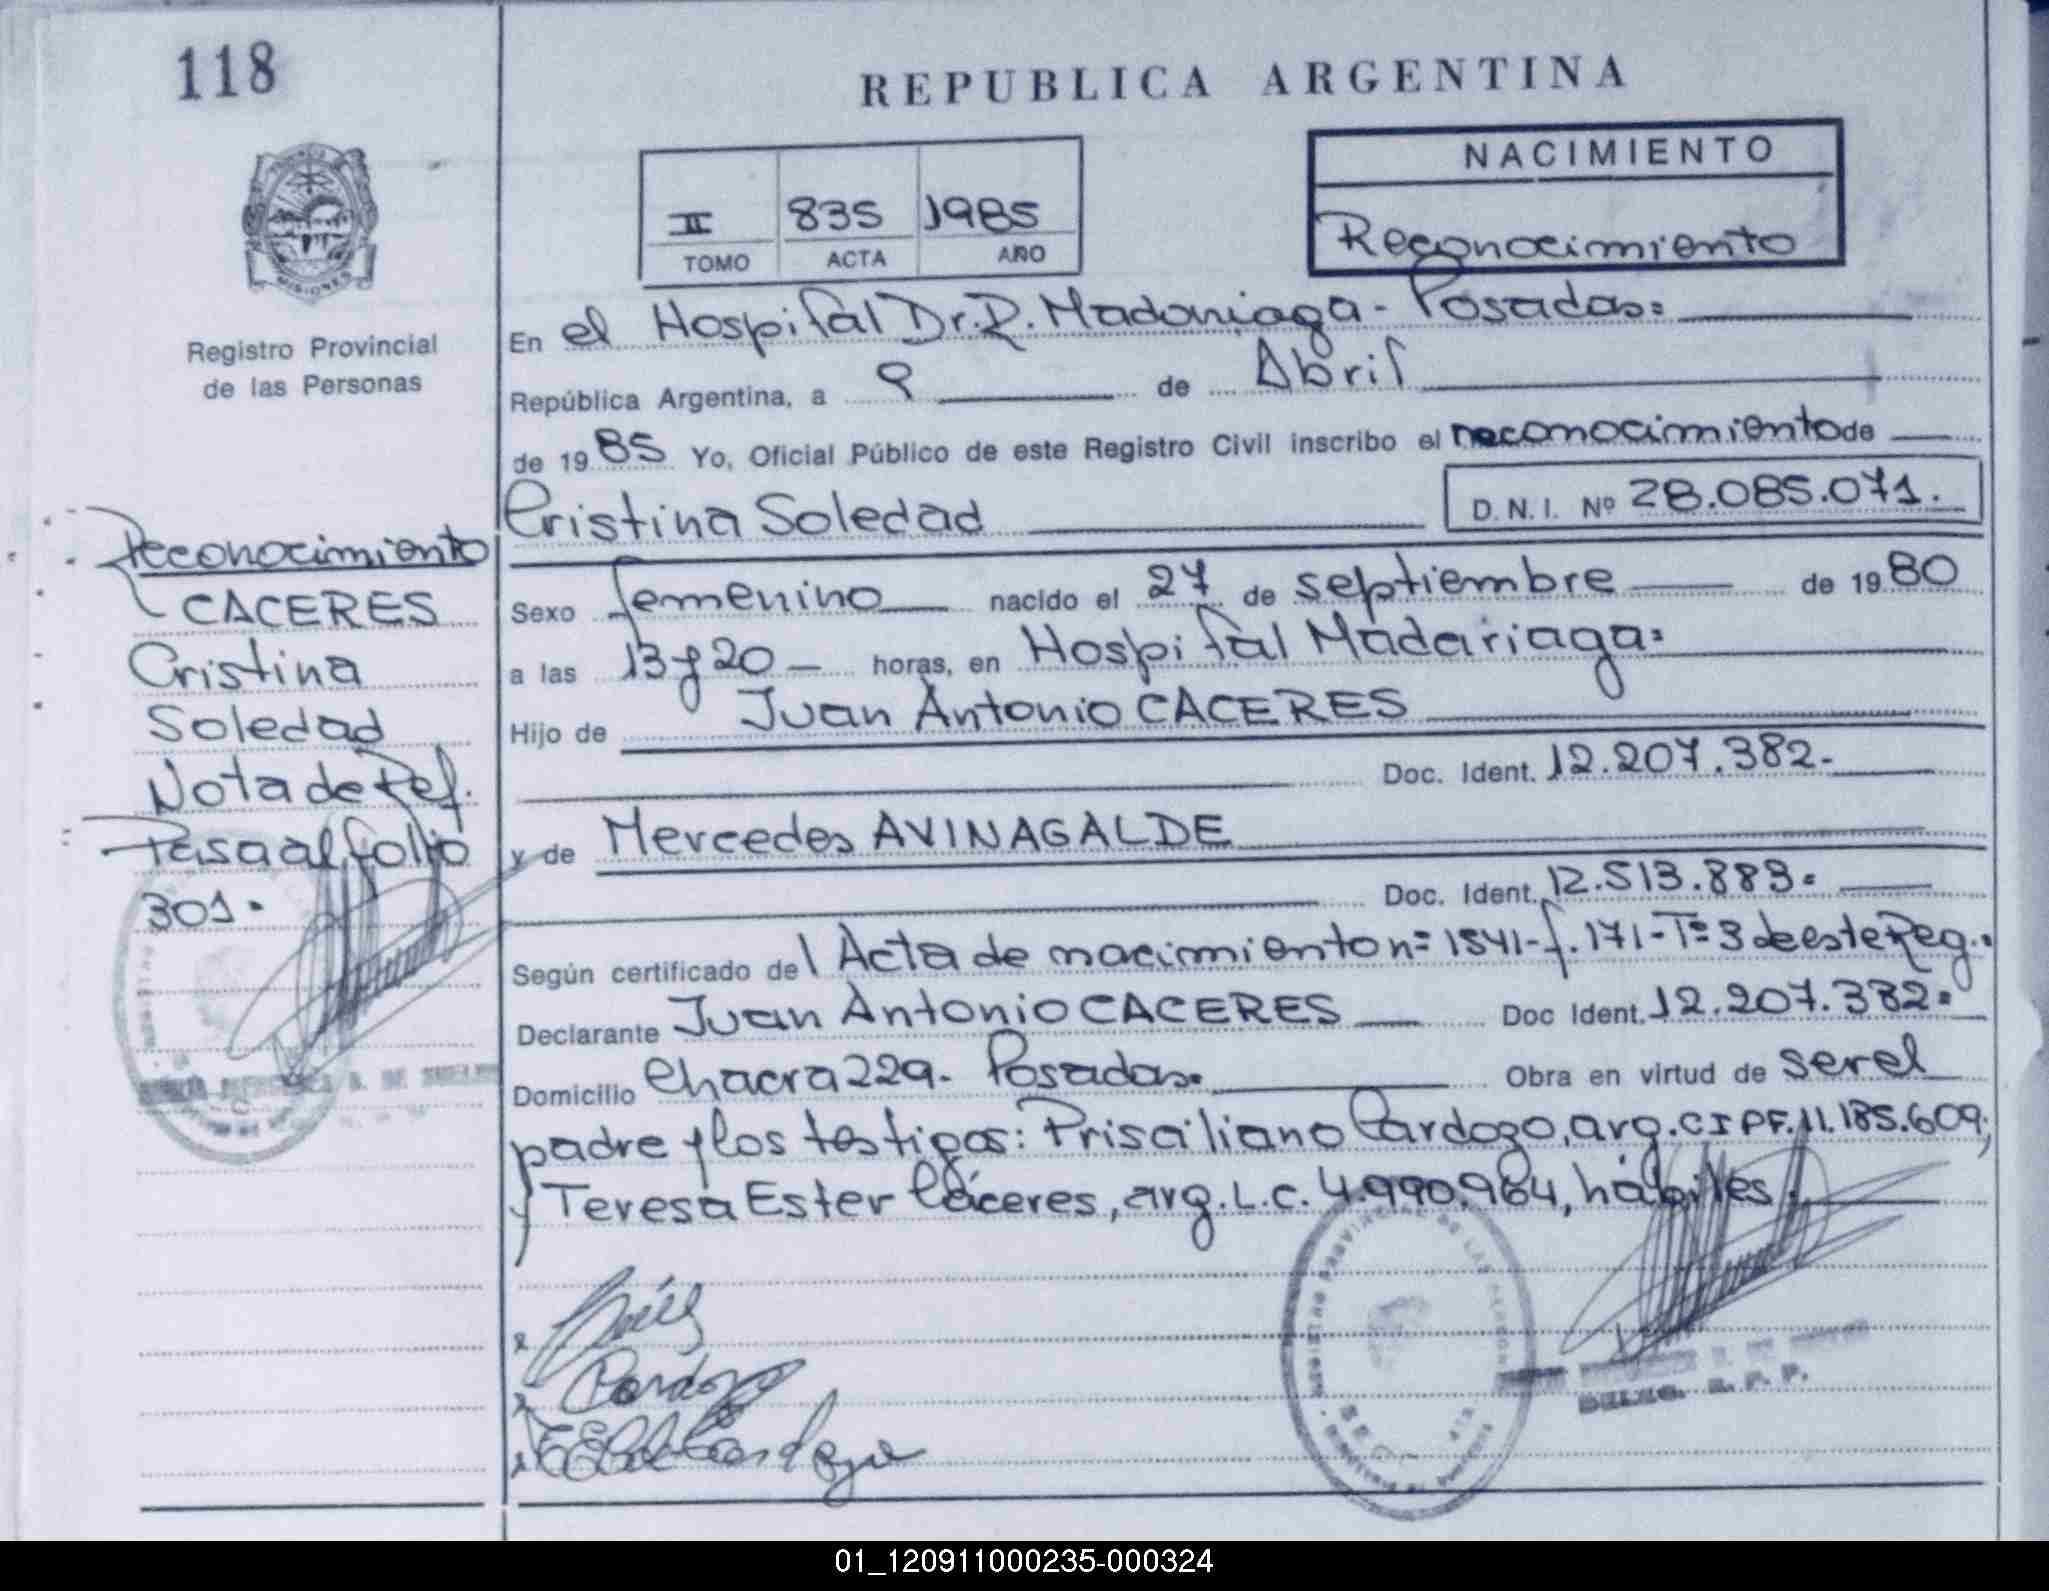 118
REPUBLICA ARGENTINA
NACIMIENTO
Reconocimiento
II 835 1985
TOMO ACTA AÑO
MISIONES
Registro Provincial
de las Personas
Reconocimiento
CACERES
Cristina
Soledad
Nota de Ref.
Pasa al folio
301.
En el Hospital Dr. R. Madariaga - Posadas=
República Argentina, a 9 de Abril
de 1985 Yo, Oficial Público de este Registro Civil inscribo el reconocimiento de
Cristina Soledad D.N.I. Nº 28.085.071.
Sexo femenino nacido el 27 de septiembre de 1980
a las 13 y 20 horas, en Hospital Madariaga=
Hijo de Juan Antonio CACERES
Doc. Ident. 12.207.382.
y de Mercedes AVINAGALDE
Doc. Ident. 12.513.883.
Según certificado del Acta de nacimiento nº 1541-f. 171-Tº 3 de este Reg.
Declarante Juan Antonio CACERES Doc Ident. 12.207.382=
Domicilio Chacra 229. Posadas. Obra en virtud de ser el
padre y los testigos: Prisciliano Cardozo, arg. CI PF. 11.185.609;
y Teresa Ester Cáceres, arg. L.C. 4.990.964, hábiles.
x
x Cardozo
x
01_120911000235-000324